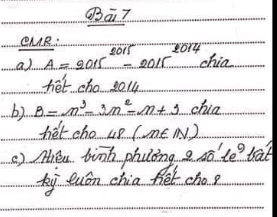 Bài 7
CMR:
a) A = 2015²⁰¹⁵ - 2015²⁰¹⁴ chia
hết cho 2014
b) B = n³ - 3n² - n + 3 chia
hết cho 48 (n ∈ IN)
c) Hiệu bình phương 2 số lẻ bất
kỳ luôn chia hết cho 8